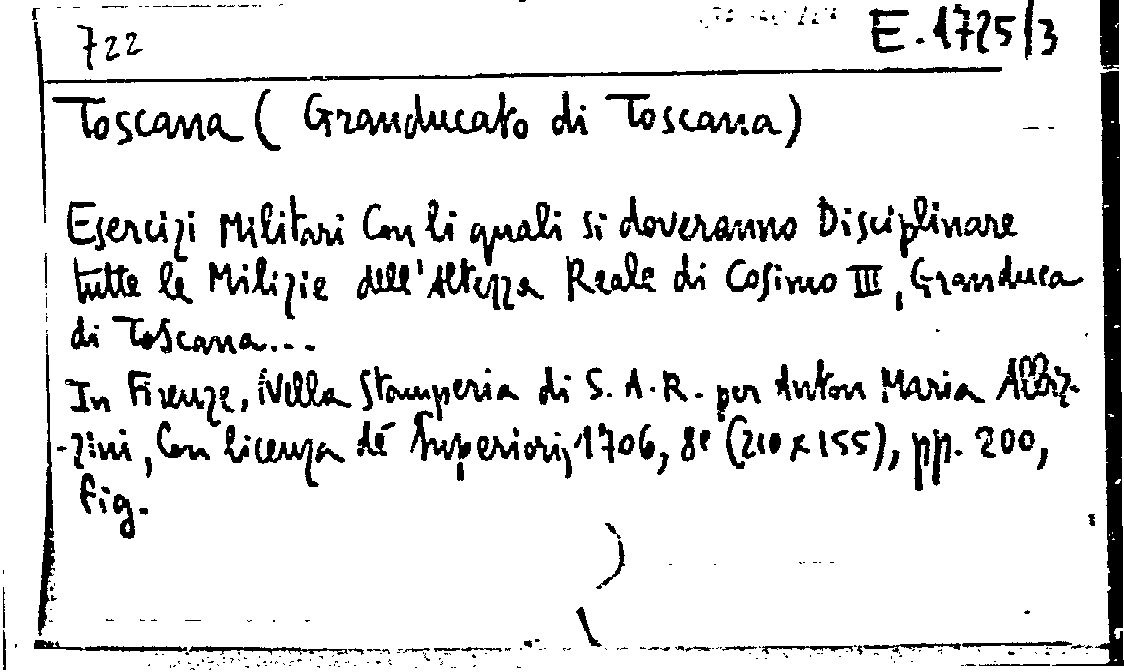 722 E.1725/3
Toscana ( Granducato di Toscana)
Esercizi Militari Con li quali si doveranno Disciplinare
tutte le Milizie dell'Altezza Reale di Cosimo III, Granduca
di Toscana...
In Firenze, Nella Stamperia di S. A. R. per Anton Maria Albiz-
-zini, Con licenza dé Superiori, 1706, 8º (210 x 155), pp. 200,
fig.